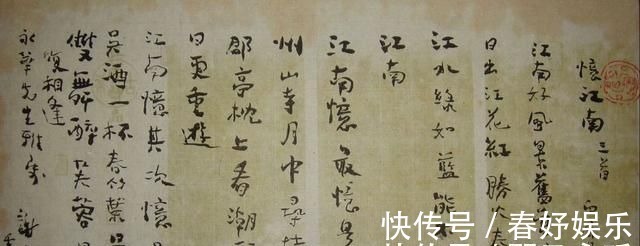 憶江南三首
江南好風景舊
日出江花紅勝
江水綠如藍能
江南
江南憶最憶是
州山寺月中尋
郡亭枕上看潮
日更重遊
江南憶其次憶
吳酒一杯春竹葉
雙舞醉芙蓉
復相逢
永華先生雅屬
謝
快传号／春好娱乐